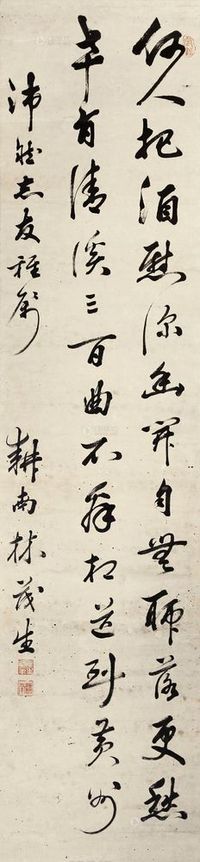 何人把酒慰深幽開自無聊落更愁
幸有清溪三百曲不辭相送到黃州
沛然志友雅屬
耕南林茂生